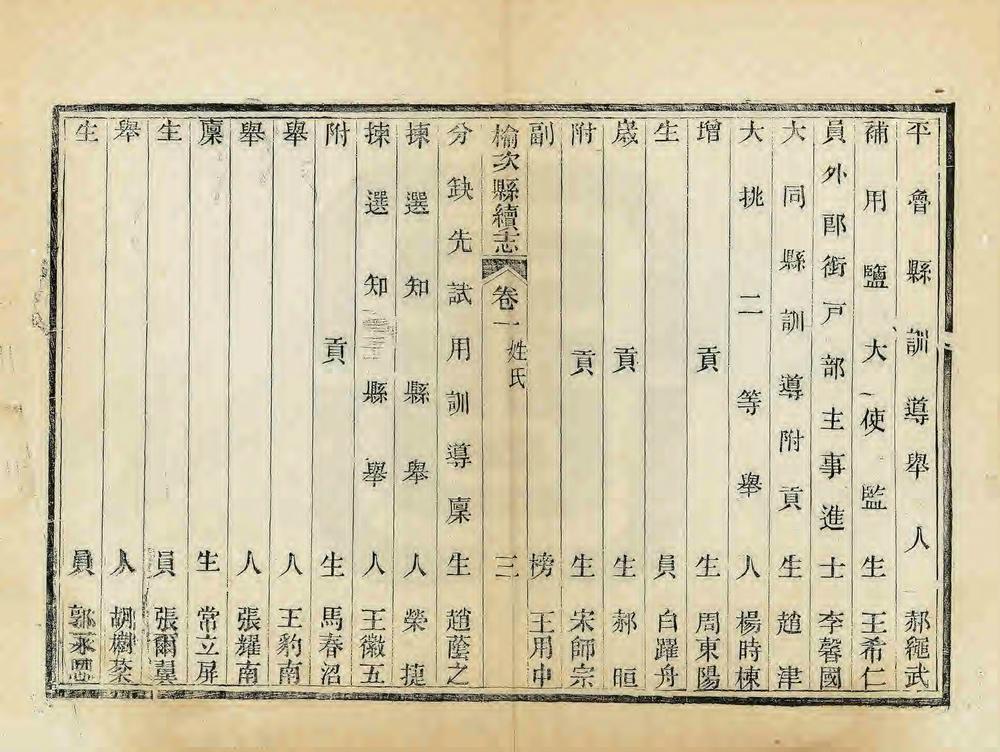 平魯縣訓導舉人郝繩武
補用鹽大使監生王希仁
員外郎銜戸部主事進士李馨國
大同縣訓導附貢生趙津
大挑二等舉人楊時棟
增貢生周東陽
生員白躍舟
歲貢生郝晅
附貢生宋師宗
副榜王用中
榆次縣續志 卷一 姓氏 三
分缺先試用訓導廩生趙蔭之
揀選知縣舉人榮捷
揀選知縣舉人王徽五
附貢生馬春沼
舉人王豹南
舉人張耀南
廩生常立屏
生員張爾翼
舉人胡樹棻
生員郭永